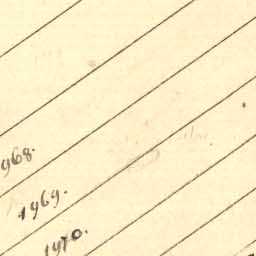 968.
1969.
1970.